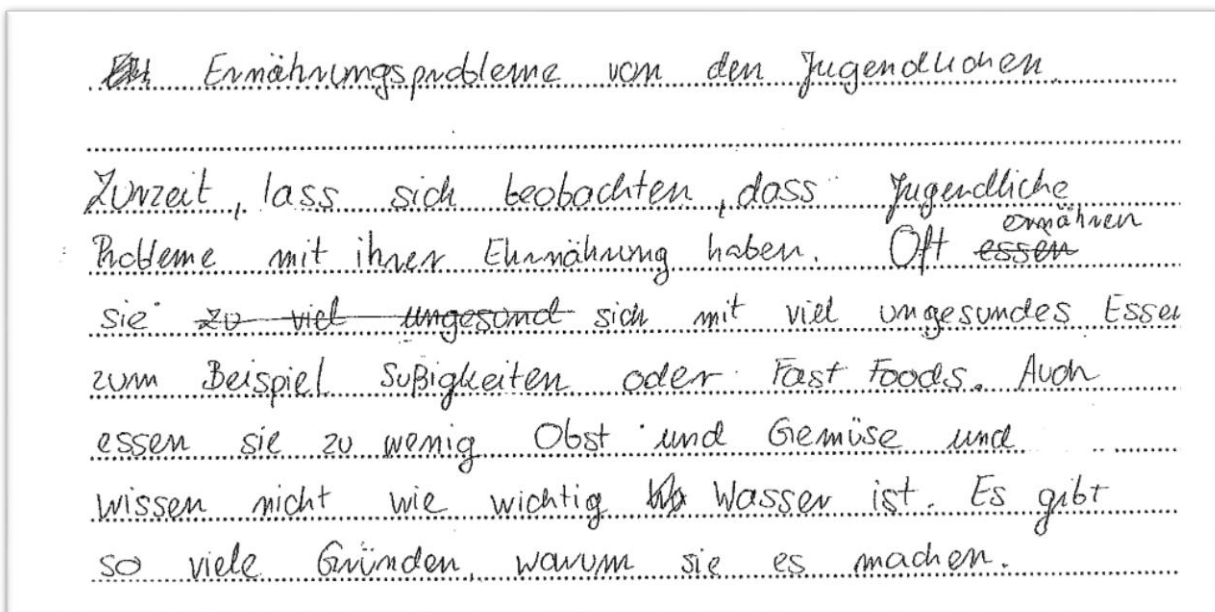 Ernährungsprobleme von den Jugendlichen
Zurzeit, lass sich beobachten, dass Jugendliche
Probleme mit ihrer Ehrnährung haben. Oft essen ernähren
sie zu viel ungesund sich mit viel ungesundes Essen
zum Beispiel Sußigkeiten oder Fast Foods. Auch
essen sie zu wenig Obst und Gemüse und
wissen nicht wie wichtig Wasser ist. Es gibt
so viele Gründen, warum sie es machen.